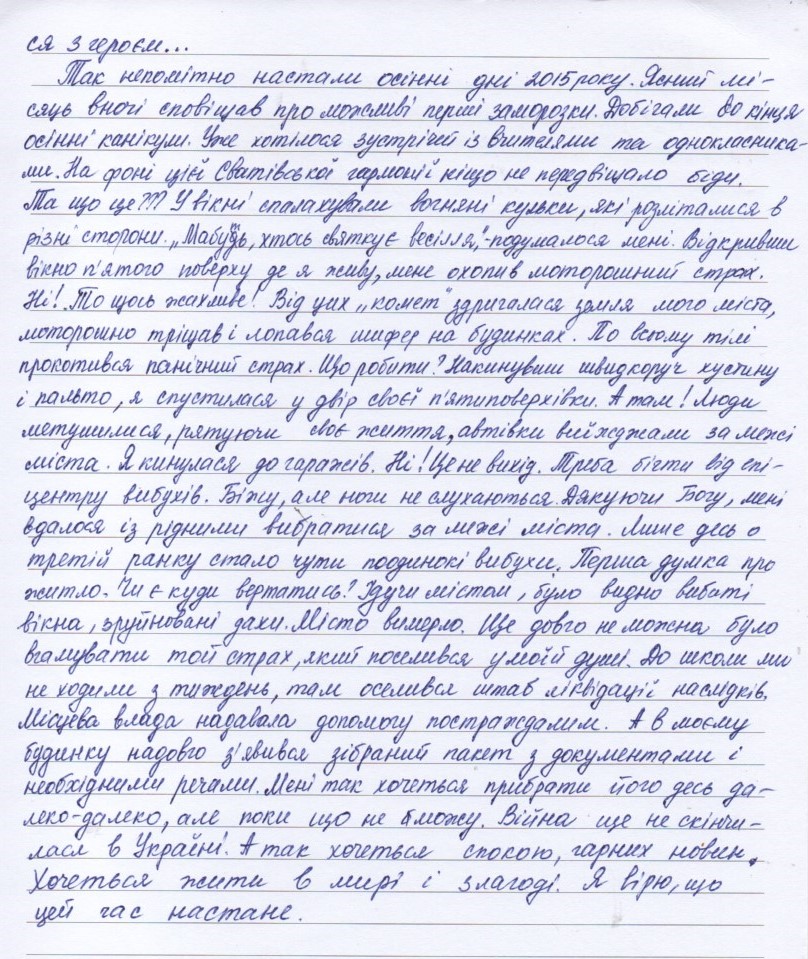 ся з героєм...
Так непомітно настали осінні дні 2015 року. Ясний мі-
сяць вночі сповіщав про можливі перші заморозки. Добігали до кінця
осінні канікули. Уже хотілося зустрічей із вчителями та однокласника-
ми. На фоні цієї Сватівської гармонії ніщо не передвіщало біди.
Та що це??? У вікні спалахували вогняні кульки, які розліталися в
різні сторони. „Мабудь, хтось святкує весілля",-подумалося мені. Відкривши
вікно п'ятого поверху де я живу, мене охопив моторошний страх.
Ні! То щось жахливе! Від цих „комет" здригалася земля мого міста,
моторошно тріщав і лопався шифер на будинках. По всьому тілі
прокотився панічний страх. Що робити? Накинувши швидкоруч хустину
і пальто, я спустилася у двір своєї п'ятиповерхівки. А там! Люди
метушилися, рятуючи своє життя, автівки виїжджали за межі
міста. Я кинулася до гаражів. Ні! Це не вихід. Треба бігти від епі-
центру вибухів. Біжу, але ноги не слухаються. Дякуючи Богу, мені
вдалося із рідними вибратися за межі міста. Лише десь о
третій ранку стало чути поодинокі вибухи. Перша думка про
житло. Чи є куди вертатись? Ідучи містом, було видно вибиті
вікна, зруйновані дахи. Місто вимерло. Ще довго не можна було
вгамувати той страх, який поселився у моїй душі. До школи ми
не ходили з тиждень, там оселився штаб ліквідації наслідків.
Місцева влада надавала допомогу постраждалим. А в моєму
будинку надовго з'явився зібраний пакет з документами і
необхідними речами. Мені так хочеться прибрати його десь да-
леко-далеко, але поки що не можу. Війна ще не скінчи-
лася в Україні! А так хочеться спокою, гарних новин.
Хочеться жити в мирі і злагоді. Я вірю, що
цей час настане.